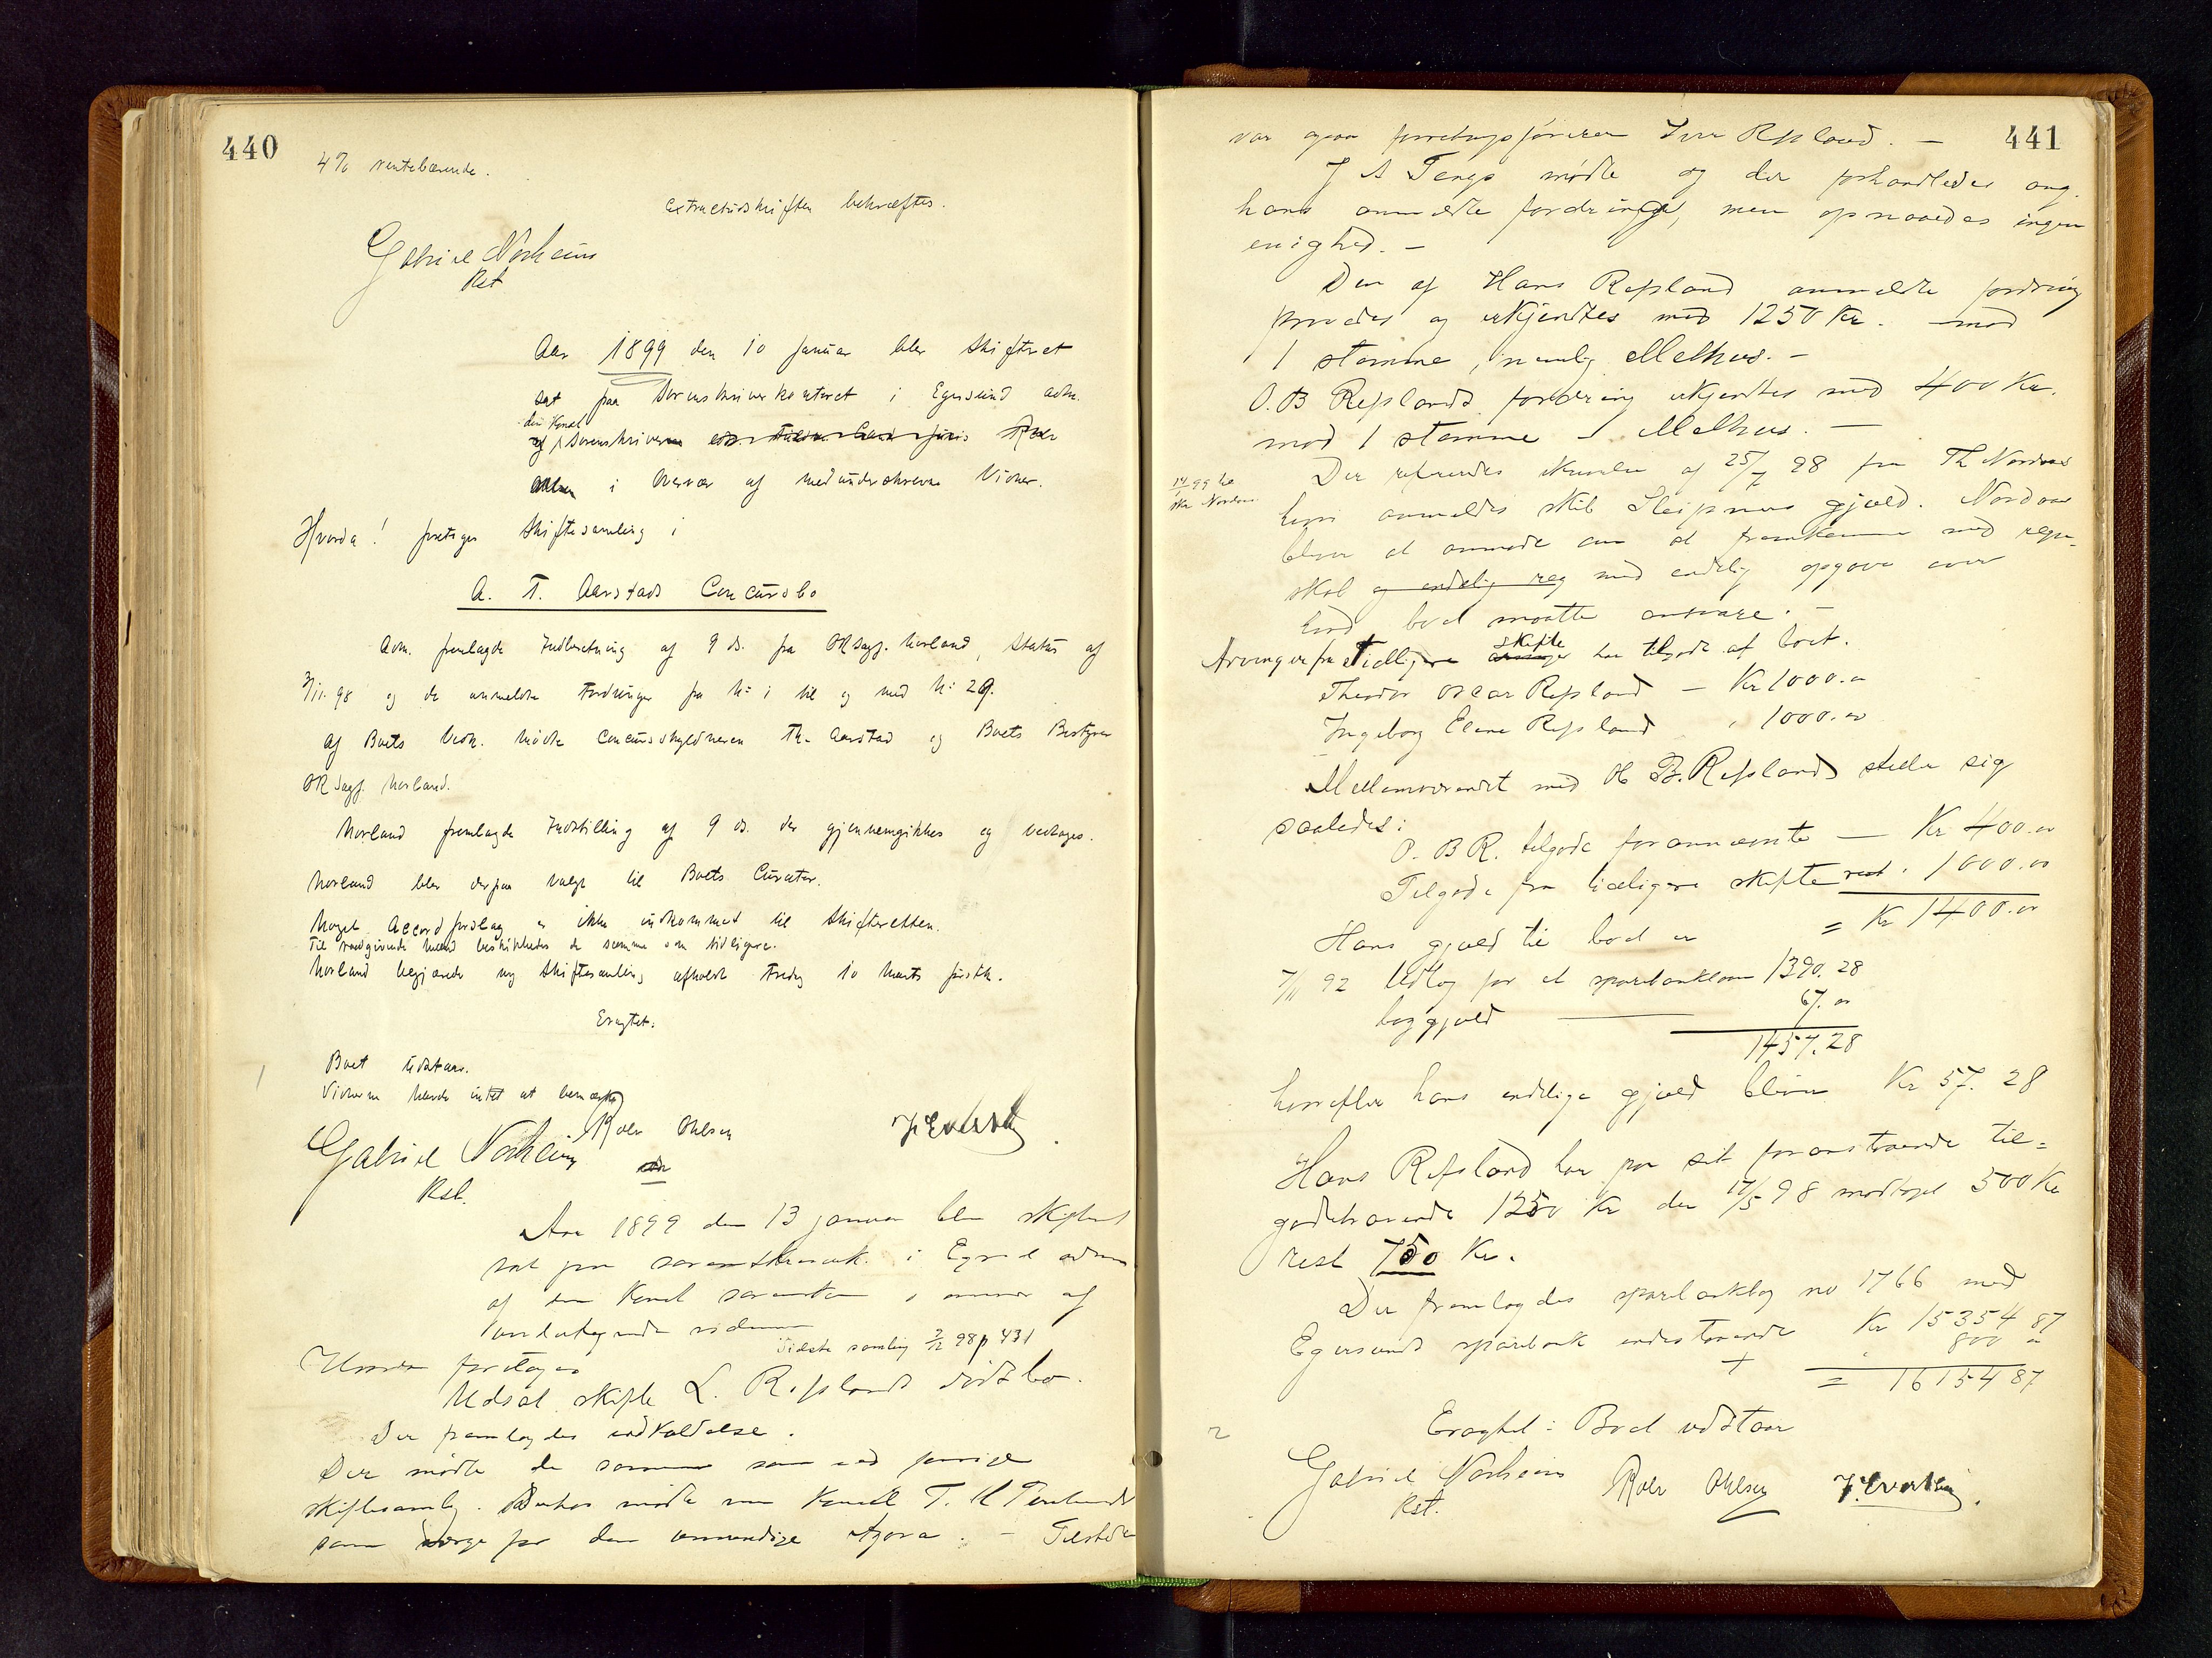 440
4% rentebærende.
Extractudskriften bekræftes.
Gabriel Norheim
Rst
Aar 1899 den 10 Januar blev Skifteret
sat paa Sorenskriverkontoret i Egersund adm.
den Konst
af Sorenskriveren
i Overvær af medunderskrevne Vidner.
Hvorda! foretoges Skiftesamling i
A. T. Aarstads Concursbo
Adm. fremlagde Indberetning af 9 ds. fra ORsagf. Norland, Status af
3/11.98 og de anmeldte Fordringer fra No 1 til og med No 29.
Af Boets Vedk. mødte Concursskyldneren Th. Aarstad og Boets Bestyrer
ORsagf. Norland.
Norland fremlagde Indstilling af 9 ds. der gjennemgikkes og vedtages.
Norland blev derpaa valgt til Boets Curator.
Noget Accordforslag er ikke indkommet til Skifteretten.
Til raadgivende Mænd beskikkedes de samme som tidligere.
Norland begjærede ny Skiftesamling afholdt Fredag 10 Marts førstk.
Eragtet:
Boet udstaar.
Vidnerne havde intet at bemærke
Gabriel Norheim Rolv Ohlsen
Rst.
Aar 1899 den 13 januar blev skifteret
sat paa sorenskriverk. i Egersd adm
af den Konst sorenskr i overvær af
undertegnede vidner
Sidste samling 2/12 98 p 431
Hvorda foretoges
Udsat skifte L. Refslands dødsbo.
Der fremlagdes indkaldelse.
Der mødte de samme som ved forrige
skiftesamlg. Derhos mødte nu
som værge for den umyndige Agora. – Tilstede
441
var ogsaa forretningsføreren Iver Refsland. –
J A Tengs mødte og der forhandledes ang.
hans anmeldte fordringer, men opnaaedes ingen
enighed. –
Den af Hans Refsland anmeldte fordring
prøvedes og erkjendtes med 1250 Kr. – mod
1 stemme, nemlig Melhus. –
O. B Refslands fordring erkjendtes med 400 Kr.
mod 1 stemme – Melhus. –
Der refereredes skrivelse af 25/7 98 fra Th Nordaas
hvori anmeldes skib Sleipners gjæld. Nordaas
bliver at anmode om at fremkomme med regn-
skab og endelig reg med endelig opgave over
hvad boet maatte ansvare. –
Arvinger fra tidligere skifte har tilgode af boet.
Theodor Oscar Refsland – Kr 1000.00
Ingeborg Elene Refsland " 1000.00
Mellemværendet med O B. Refsland stiller sig
saaledes:
O. B R. tilgode forannævnte — Kr 400.00
Tilgode fra tidligere skifte rest " 1000.00
= Kr 1400.00
Hans gjæld til boet er
7/11 92 Udlæg for et sparebanklaan 1390.28
boggjæld —— 67.00
1457.28
herefter hans endelige gjæld bliver Kr 57.28
Hans Refsland har paa sit foranstaaende til-
godehavende 1250 Kr den 17/5 98 modtaget 500 Kr
rest 750 Kr.
Der fremlagdes sparebankbog no 1766 med
Egersunds sparebank indestaaende Kr 15354 87
+ " 800 00
= 16154 87
Eragtet: Boet udstaar
Gabriel Norheim Rolv Ohlsen
Rst.